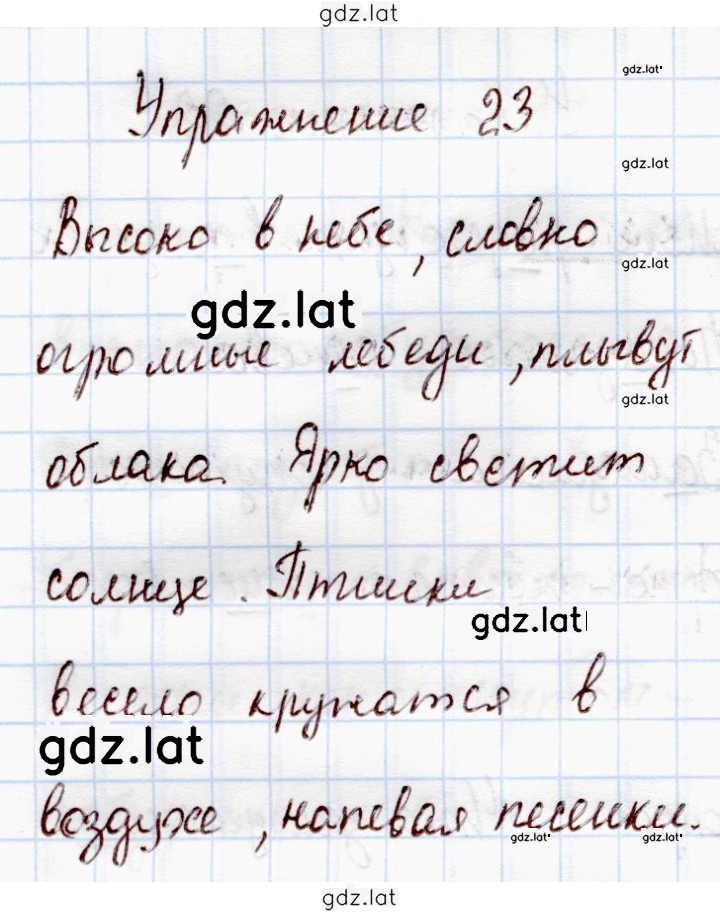 gdz.lat
gdz.lat
Упражнение 23
gdz.lat
Высоко в небе, словно
gdz.lat
gdz.lat
огромные лебеди, плывут
gdz.lat
облака. Ярко светит
солнце. Птички
gdz.lat
весело кружатся в
gdz.lat
воздухе, напевая песенки.
gdz.lat gdz.lat
gdz.lat